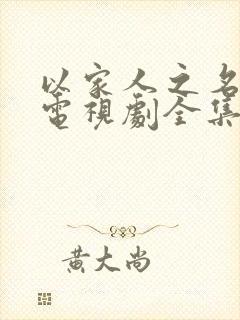 以家人之名
電視劇全集
黃大尚